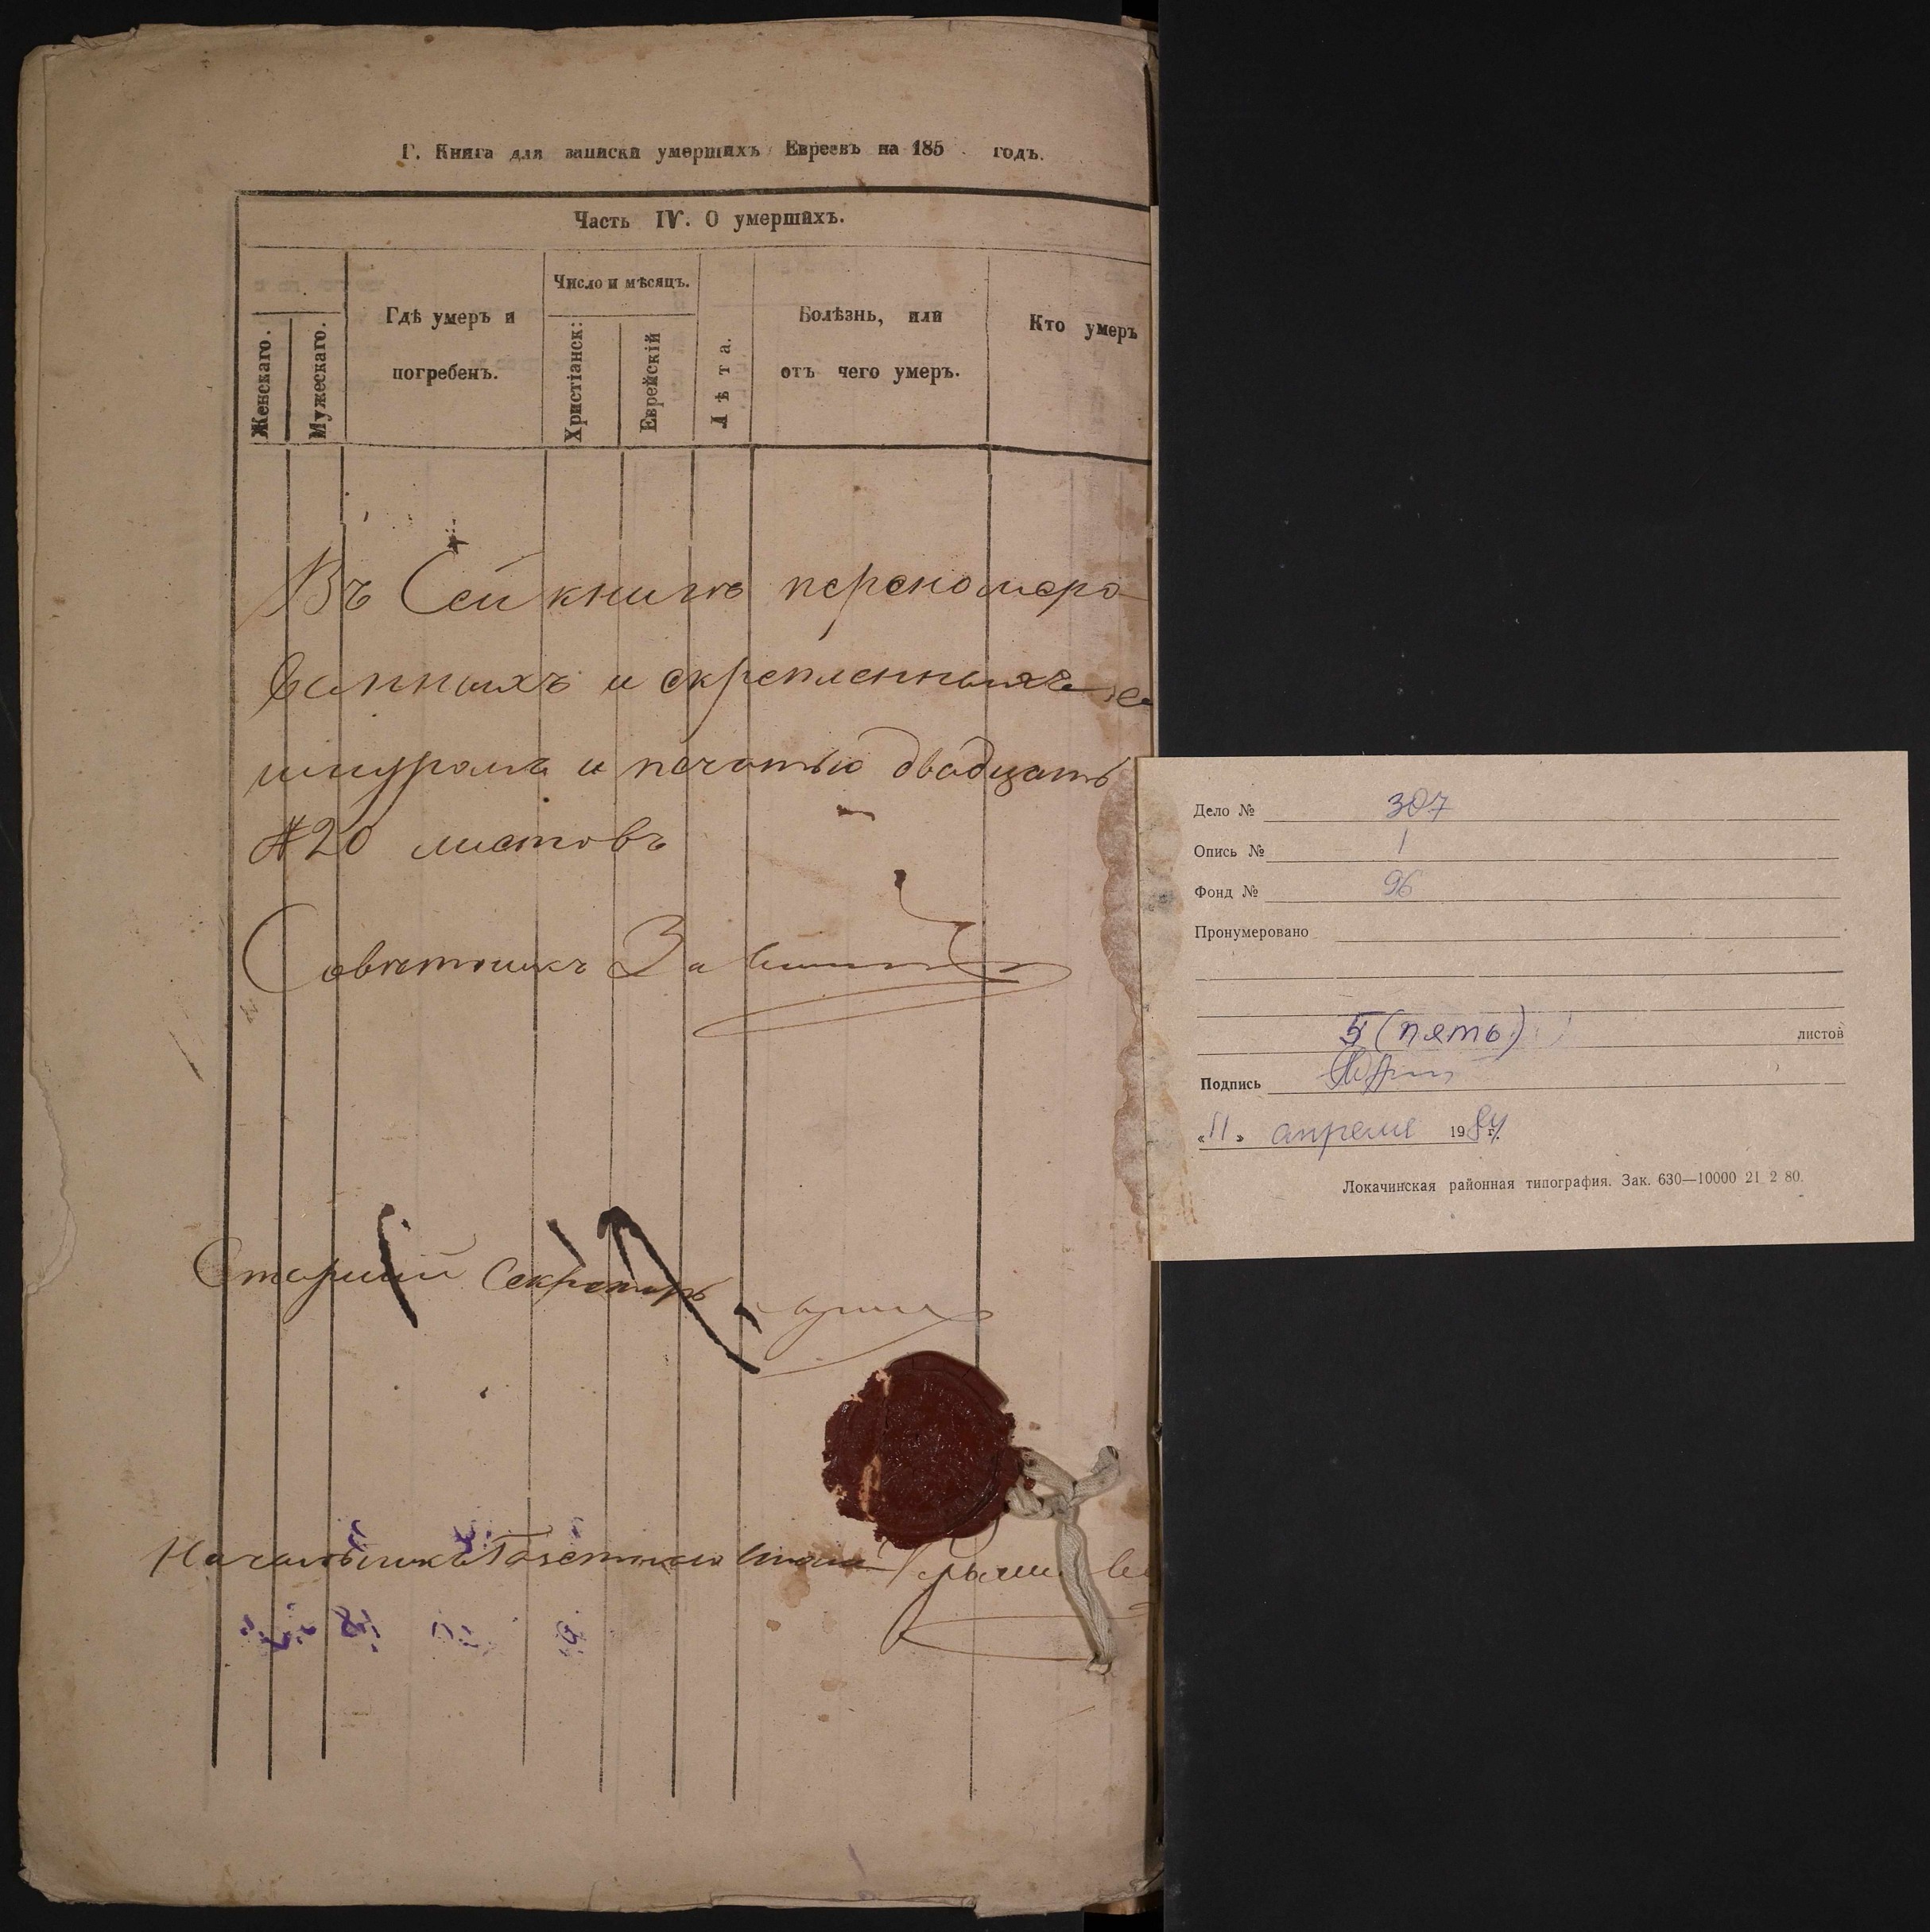 Г. Книга для записки умершихъ Евреевъ на 185 . годъ.
Часть IV. О умершихъ.
Женскаго.
Мужескаго.
Гдѣ умеръ и
погребенъ.
Число и мѣсяцъ.
Христіанск:
Еврейскій
Лѣта.
Болѣзнь, или
отъ чего умеръ.
Кто умеръ
Въ Сей книгѣ переномеро-
ванныхъ и скрепленныхъ
шнуромъ и печатью двадцать
#20 листовъ
Совѣтникъ
Старший Секретарь
Начальникъ Газетнаго Стола
Дело № 307
Опись № 1
Фонд № 96
Пронумеровано
5 (пять)
листов
Подпись
«11» апреля 1984 г.
Локачинская районная типография. Зак. 630—10000 21 2 80.